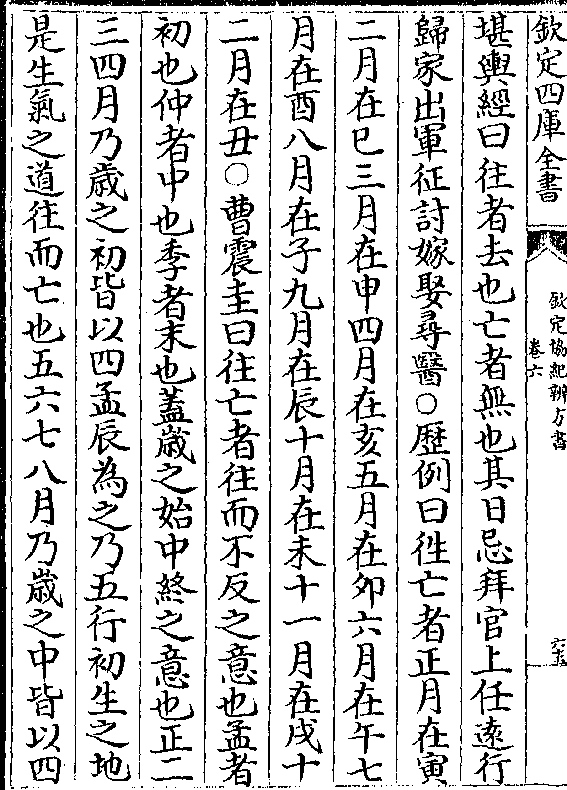 欽定四庫全書
欽定協紀辨方書
卷六
六十五
堪輿經曰往者去也亡者無也其日忌拜官上任遠行
歸家出軍征討嫁娶尋醫○歷例曰徃亡者正月在寅
二月在巳三月在申四月在亥五月在卯六月在午七
月在酉八月在子九月在辰十月在未十一月在戌十
二月在丑○曹震圭曰往亡者往而不反之意也孟者
初也仲者中也季者末也蓋歲之始中終之意也正二
三四月乃歲之初皆以四孟辰為之乃五行初生之地
是生氣之道往而亡也五六七八月乃歲之中皆以四